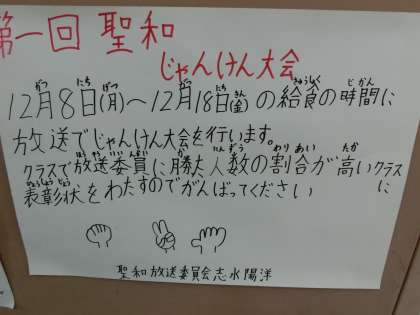 第一回 聖和
じゃんけん大会
12月8日(月)~12月18日(金)の給食の時間に
放送でじゃんけん大会を行います。
クラスで放送委員に勝た人数の割合が高いクラスに
表彰状をわたすのでがんばってください
聖和放送委員会志水陽洋